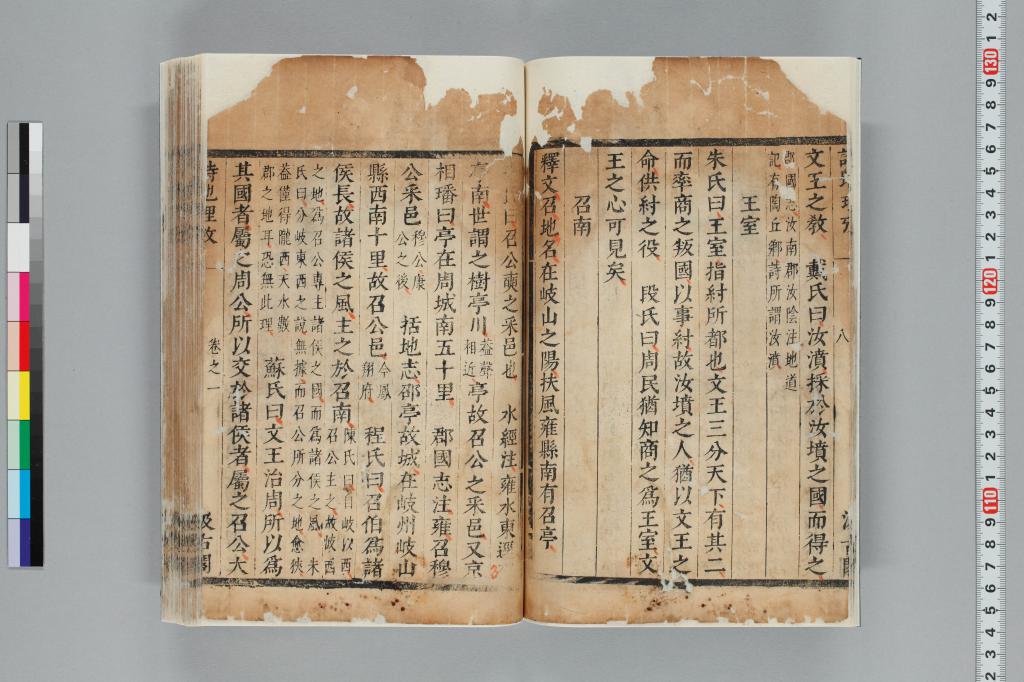 八
文王之教　戴氏曰汝濆採於汝墳之國而得之
郡國志汝南郡汝陰注地道
記有陶丘鄉詩所謂汝濆
王室
朱氏曰王室指紂所都也文王三分天下有其二
而率商之叛國以事紂故汝墳之人猶以文王之
命供紂之役　段氏曰周民猶知商之爲王室文
王之心可見矣
召南
釋文召地名在岐山之陽扶風雍縣南有召亭
曰召公奭之采邑也　水經注雍水東逕
亭南世謂之樹亭川
葢聲
相近
亭故召公之采邑又京
相璠曰亭在周城南五十里　郡國志注雍召穆
公采邑
穆公康
公之後
括地志邵亭故城在岐州岐山
縣西南十里故召公邑
今鳳
翔府
程氏曰召伯爲諸
侯長故諸侯之風主之於召南
陳氏曰自岐以西
召公主之故岐西
之地爲召公專主諸侯之國而爲諸侯之風　朱
氏曰分岐東西之說無據而召公所分之地愈狹
葢僅得隴西天水數
郡之地耳恐無此理
蘇氏曰文王治周所以爲
其國者屬之周公所以交於諸侯者屬之召公大
詩地理攷
卷之一
汲古閣